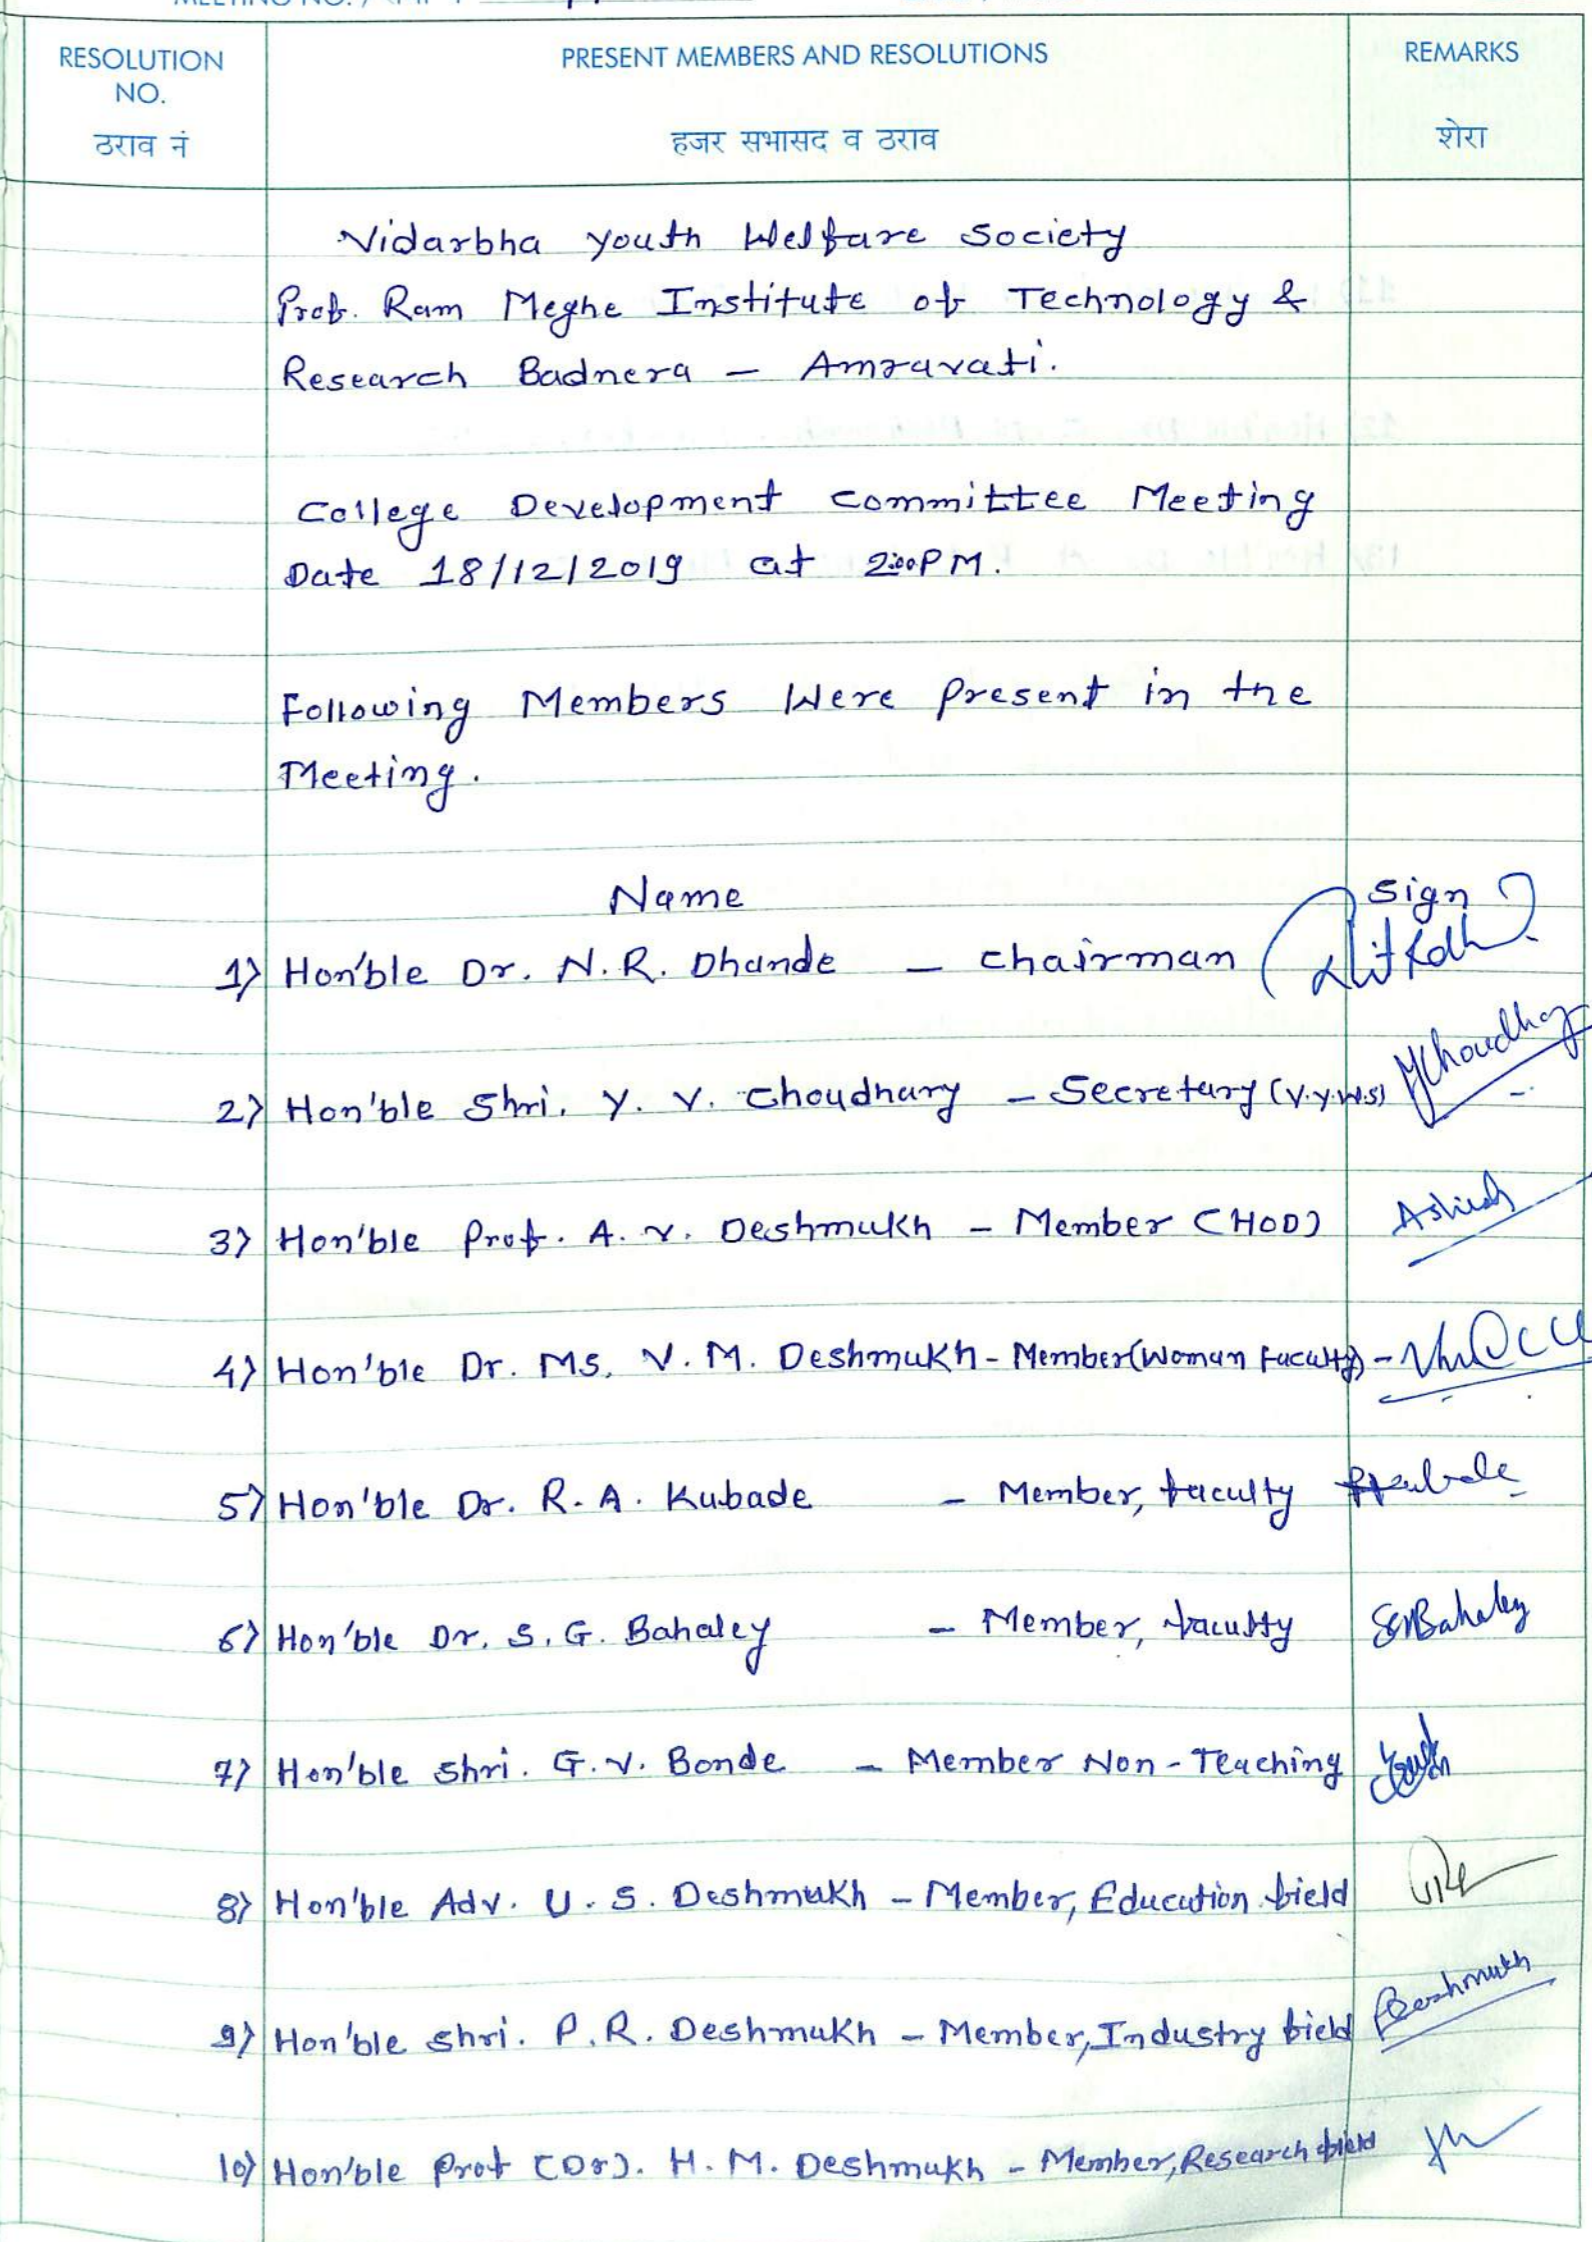 MEETING NO. /
RESOLUTION NO.
ठराव नं
PRESENT MEMBERS AND RESOLUTIONS
हजर सभासद व ठराव
REMARKS
शेरा
Vidarbha Youth Welfare Society
Prof. Ram Meghe Institute of Technology &
Research Badnera - Amravati.
College Development Committee Meeting
Date 18/12/2019 at 2:00 PM.
Following Members Were Present in the
Meeting.
Name Sign
1) Hon'ble Dr. N.R. Dhande - Chairman
2) Hon'ble Shri. Y. V. Choudhary - Secretary (V.Y.W.S) YChoudhary
3) Hon'ble Prof. A. V. Deshmukh - Member (HOD)
4) Hon'ble Dr. Ms. V. M. Deshmukh - Member (Woman Faculty) -
5) Hon'ble Dr. R. A. Kubade - Member, faculty
6) Hon'ble Dr. S. G. Bahaley - Member, faculty SGBahaley
7) Hon'ble Shri. G. V. Bonde - Member Non-Teaching
8) Hon'ble Adv. U. S. Deshmukh - Member, Education field
9) Hon'ble Shri. P.R. Deshmukh - Member, Industry field PDeshmukh
10) Hon'ble Prof (Dr). H. M. Deshmukh - Member, Research field